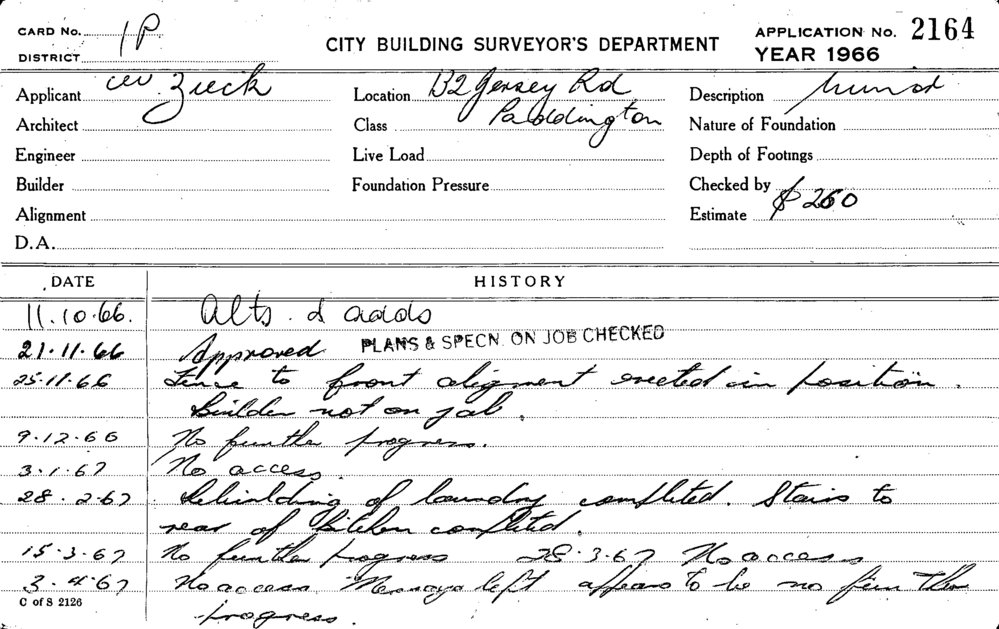 CARD No. 1P
DISTRICT
CITY BUILDING SURVEYOR'S DEPARTMENT
APPLICATION No. 2164
YEAR 1966
Applicant W. Zieck
Location 132 Jersey Rd
Paddington
Description Minor
Architect
Class
Nature of Foundation
Engineer
Live Load
Depth of Footings
Builder
Foundation Pressure
Checked by
Alignment
Estimate $ 260
D.A.
DATE HISTORY
11.10.66. Alts. & adds
21.11.66 Approved PLANS & SPECN. ON JOB CHECKED
25.11.66 Fence to front aligment erected in position.
Builder not on job.
9.12.66 No further progress.
3.1.67 No access
28.2.67 Rebuilding of laundry completed. Stairs to
rear of kitchen completed.
15.3.67 No further progress 28.3.67 No access
3.4.67 No access. Message left appears to be no further
progress.
C of S 2126